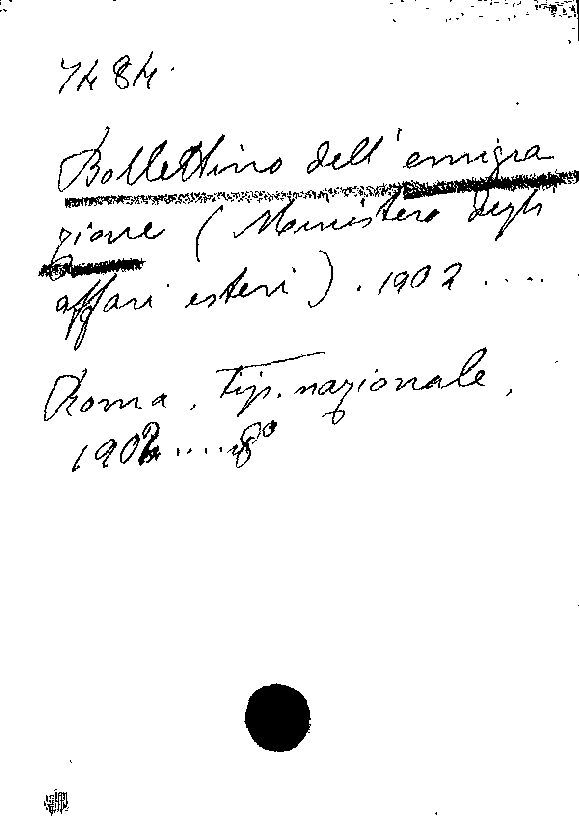 7484.
Bollettino dell'emigra
zione (Ministero degli
affari esteri). 1902 ....
Roma. Tip. nazionale,
1902 .... 8°